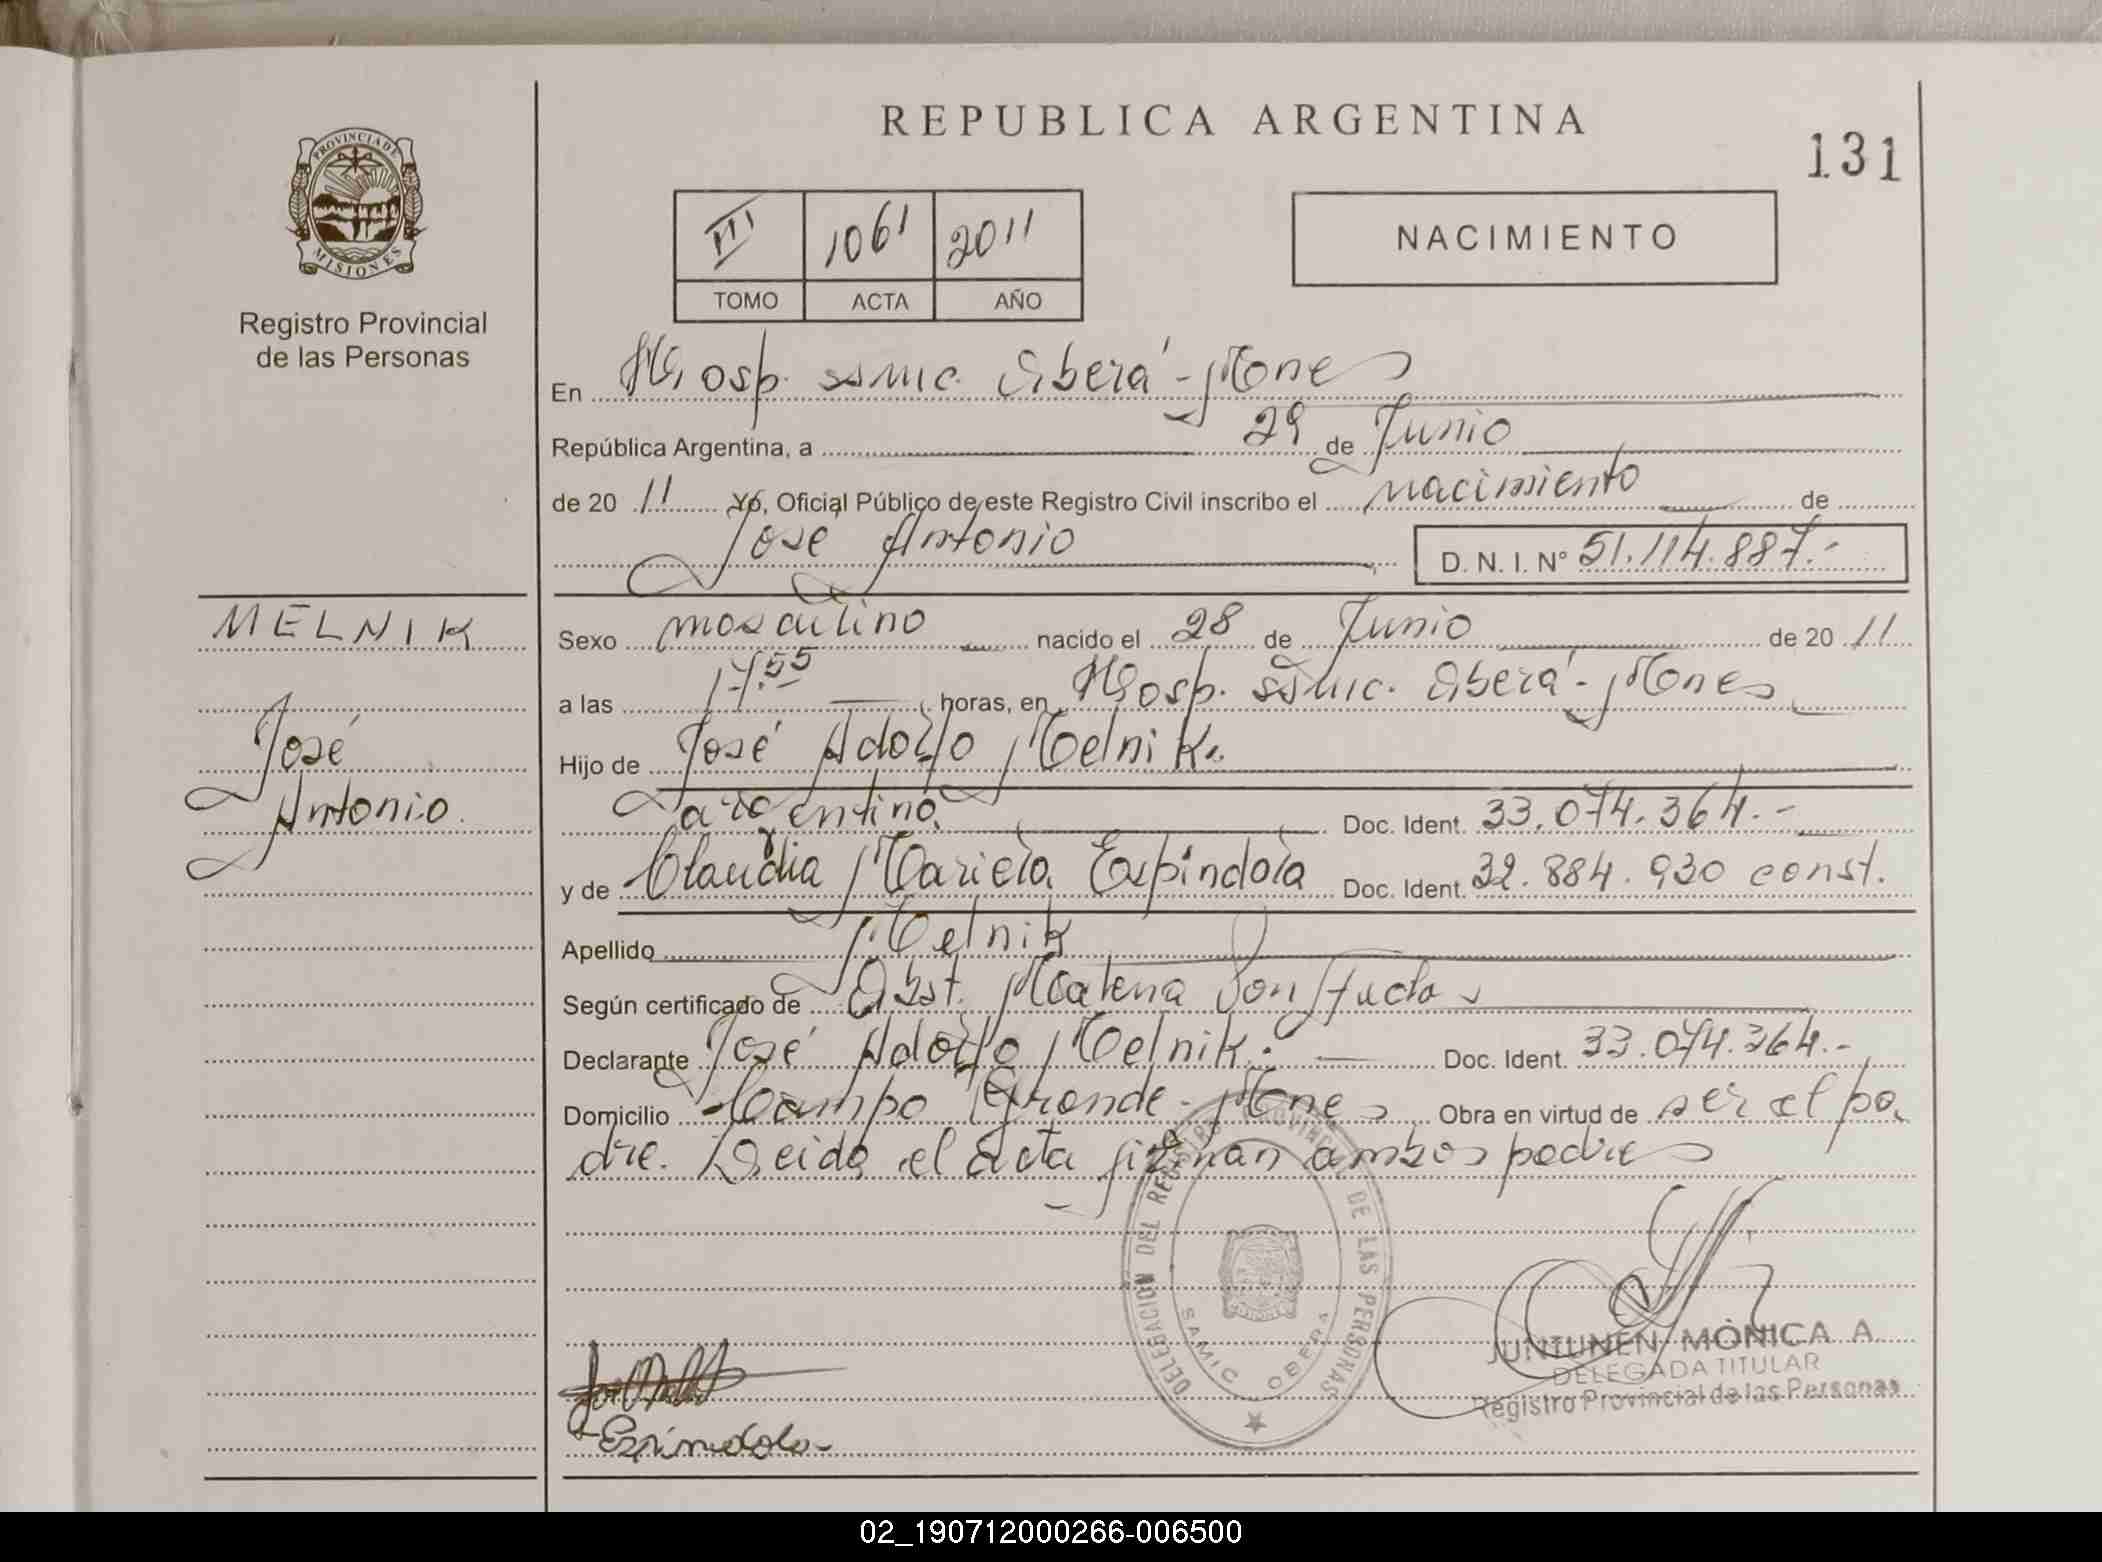 REPUBLICA ARGENTINA
131
PROVINCIA DE
MISIONES
Registro Provincial
de las Personas
III 1061 2011
TOMO ACTA AÑO
NACIMIENTO
En Hosp. ssmic. Oberá - Mones
República Argentina, a 29 de Junio
de 20 11 Yo, Oficial Público de este Registro Civil inscribo el nacimiento de
José Antonio D. N. I. N° 51.114.887.-
MELNIK
José
Antonio.
Sexo masculino nacido el 28 de Junio de 20 11
a las 17.55 horas, en Hosp. ssmic. Oberá - Mones
Hijo de José Adolfo Melnik.
argentino. Doc. Ident. 33.074.364.-
y de Claudia Mariela Espíndola Doc. Ident. 32.884.930 const.
Apellido Melnik
Según certificado de Obst. Marlena
Declarante José Adolfo Melnik.- Doc. Ident. 33.074.364.-
Domicilio Campo Grande - Mones Obra en virtud de ser el pa
dre. Leida el acta firman ambos padres
DELEGACION DEL REGISTRO PROVINCIAL DE LAS PERSONAS
SAMIC OBERA
JUNTUNEN MÒNICA A.
DELEGADA TITULAR
Registro Provincial de las Personas
Espindola
02_190712000266-006500